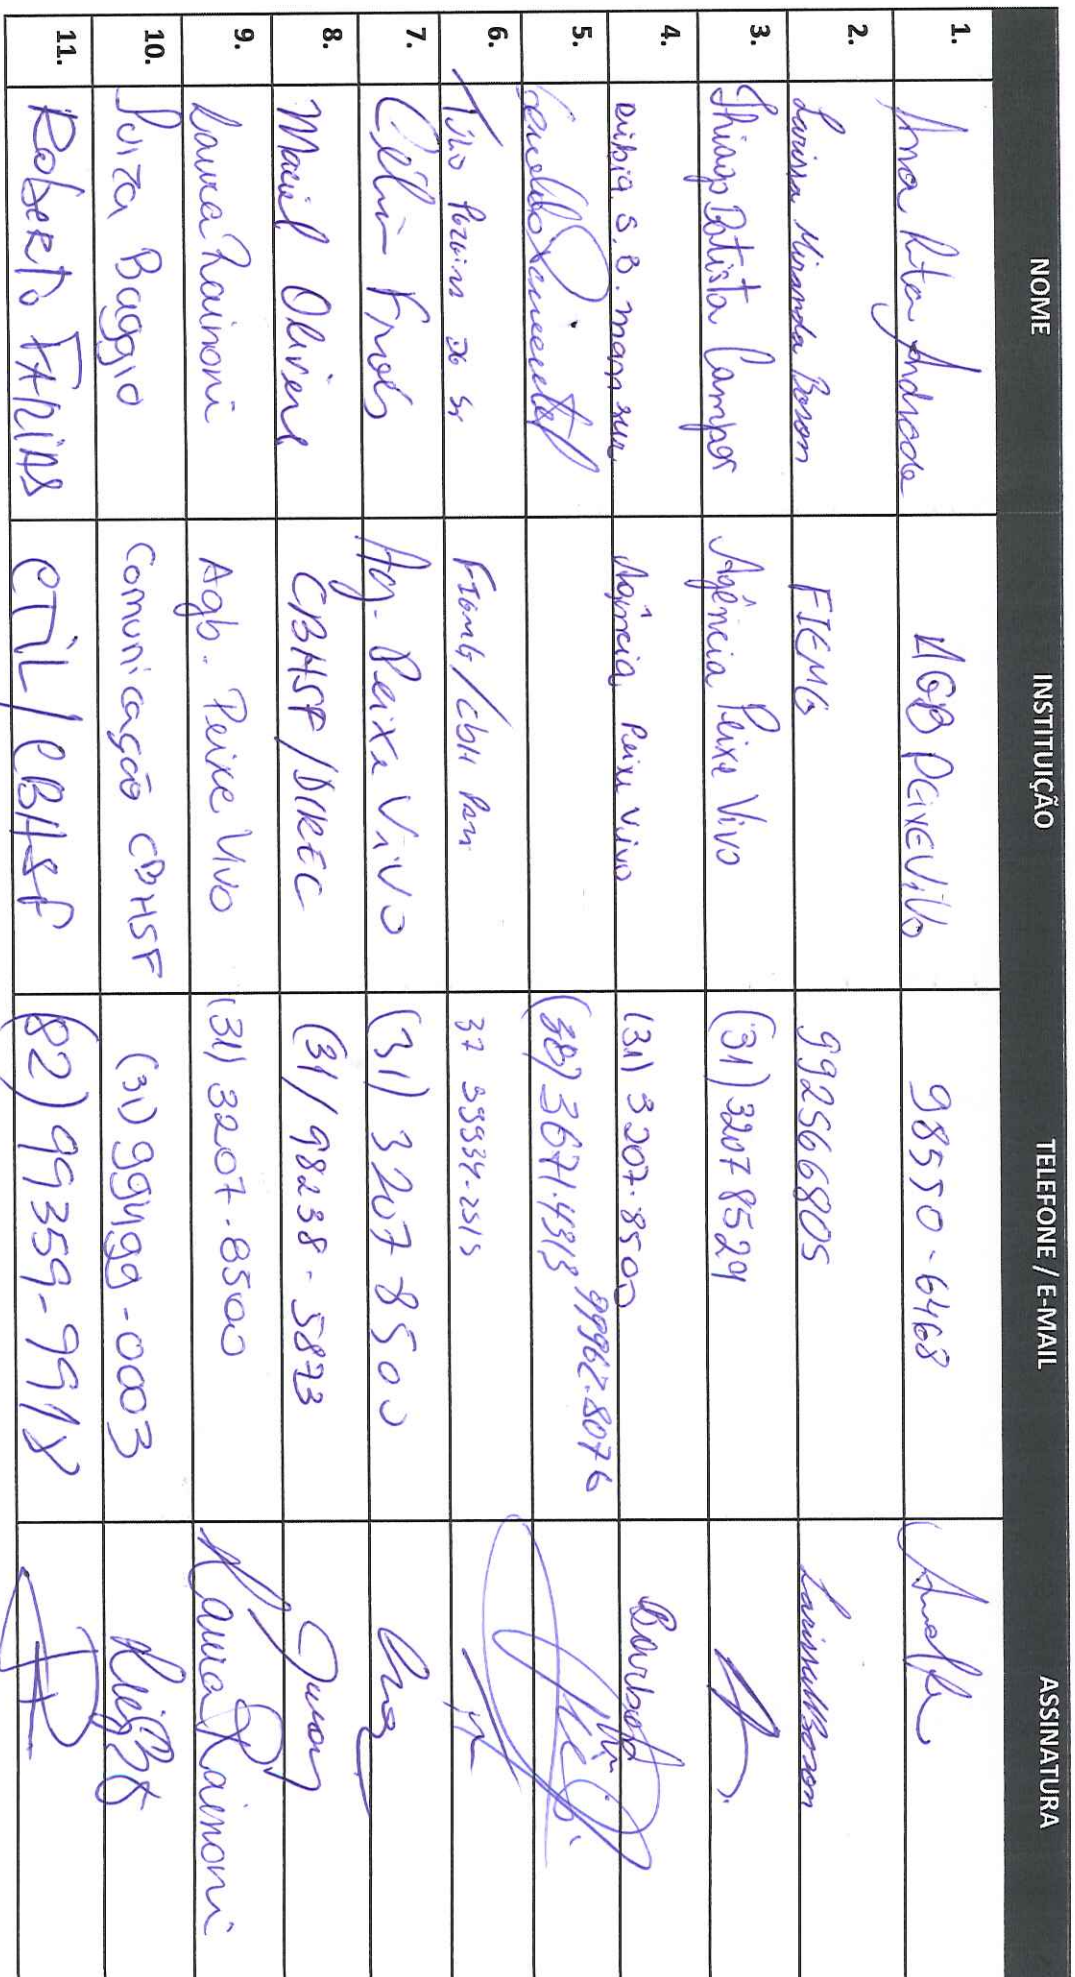 NOME INSTITUIÇÃO TELEFONE / E-MAIL ASSINATURA
1. Ana Rita Andrade AGB PEIXEVIVO 98550-6468
2. Larissa Miranda Boson FIEMG 992566805 LarissaMBoson
3. Thiago Batista Campos Agência Peixe Vivo (31) 3207 8529
4. S. B. Mansur Agência Peixe Vivo (31) 3207.8500
5. (38) 3671.4313 99962-8076
6. Túlio Pereira de Sá FIEMG/CBH 37 99934-2515
7. Célia Froés Ag. Peixe Vivo (31) 3207 8500
8. Maciel Oliveira CBHSF/DIREC (31) 98238-5873
9. Laura Rainoni Agb. Peixe Vivo (31) 3207-8500 Laura Rainoni
10. Luiza Baggio Comunicação CBHSF (31) 99499-0003
11. Roberto FARIAS CTIL/CBHSF (82) 99359-9918